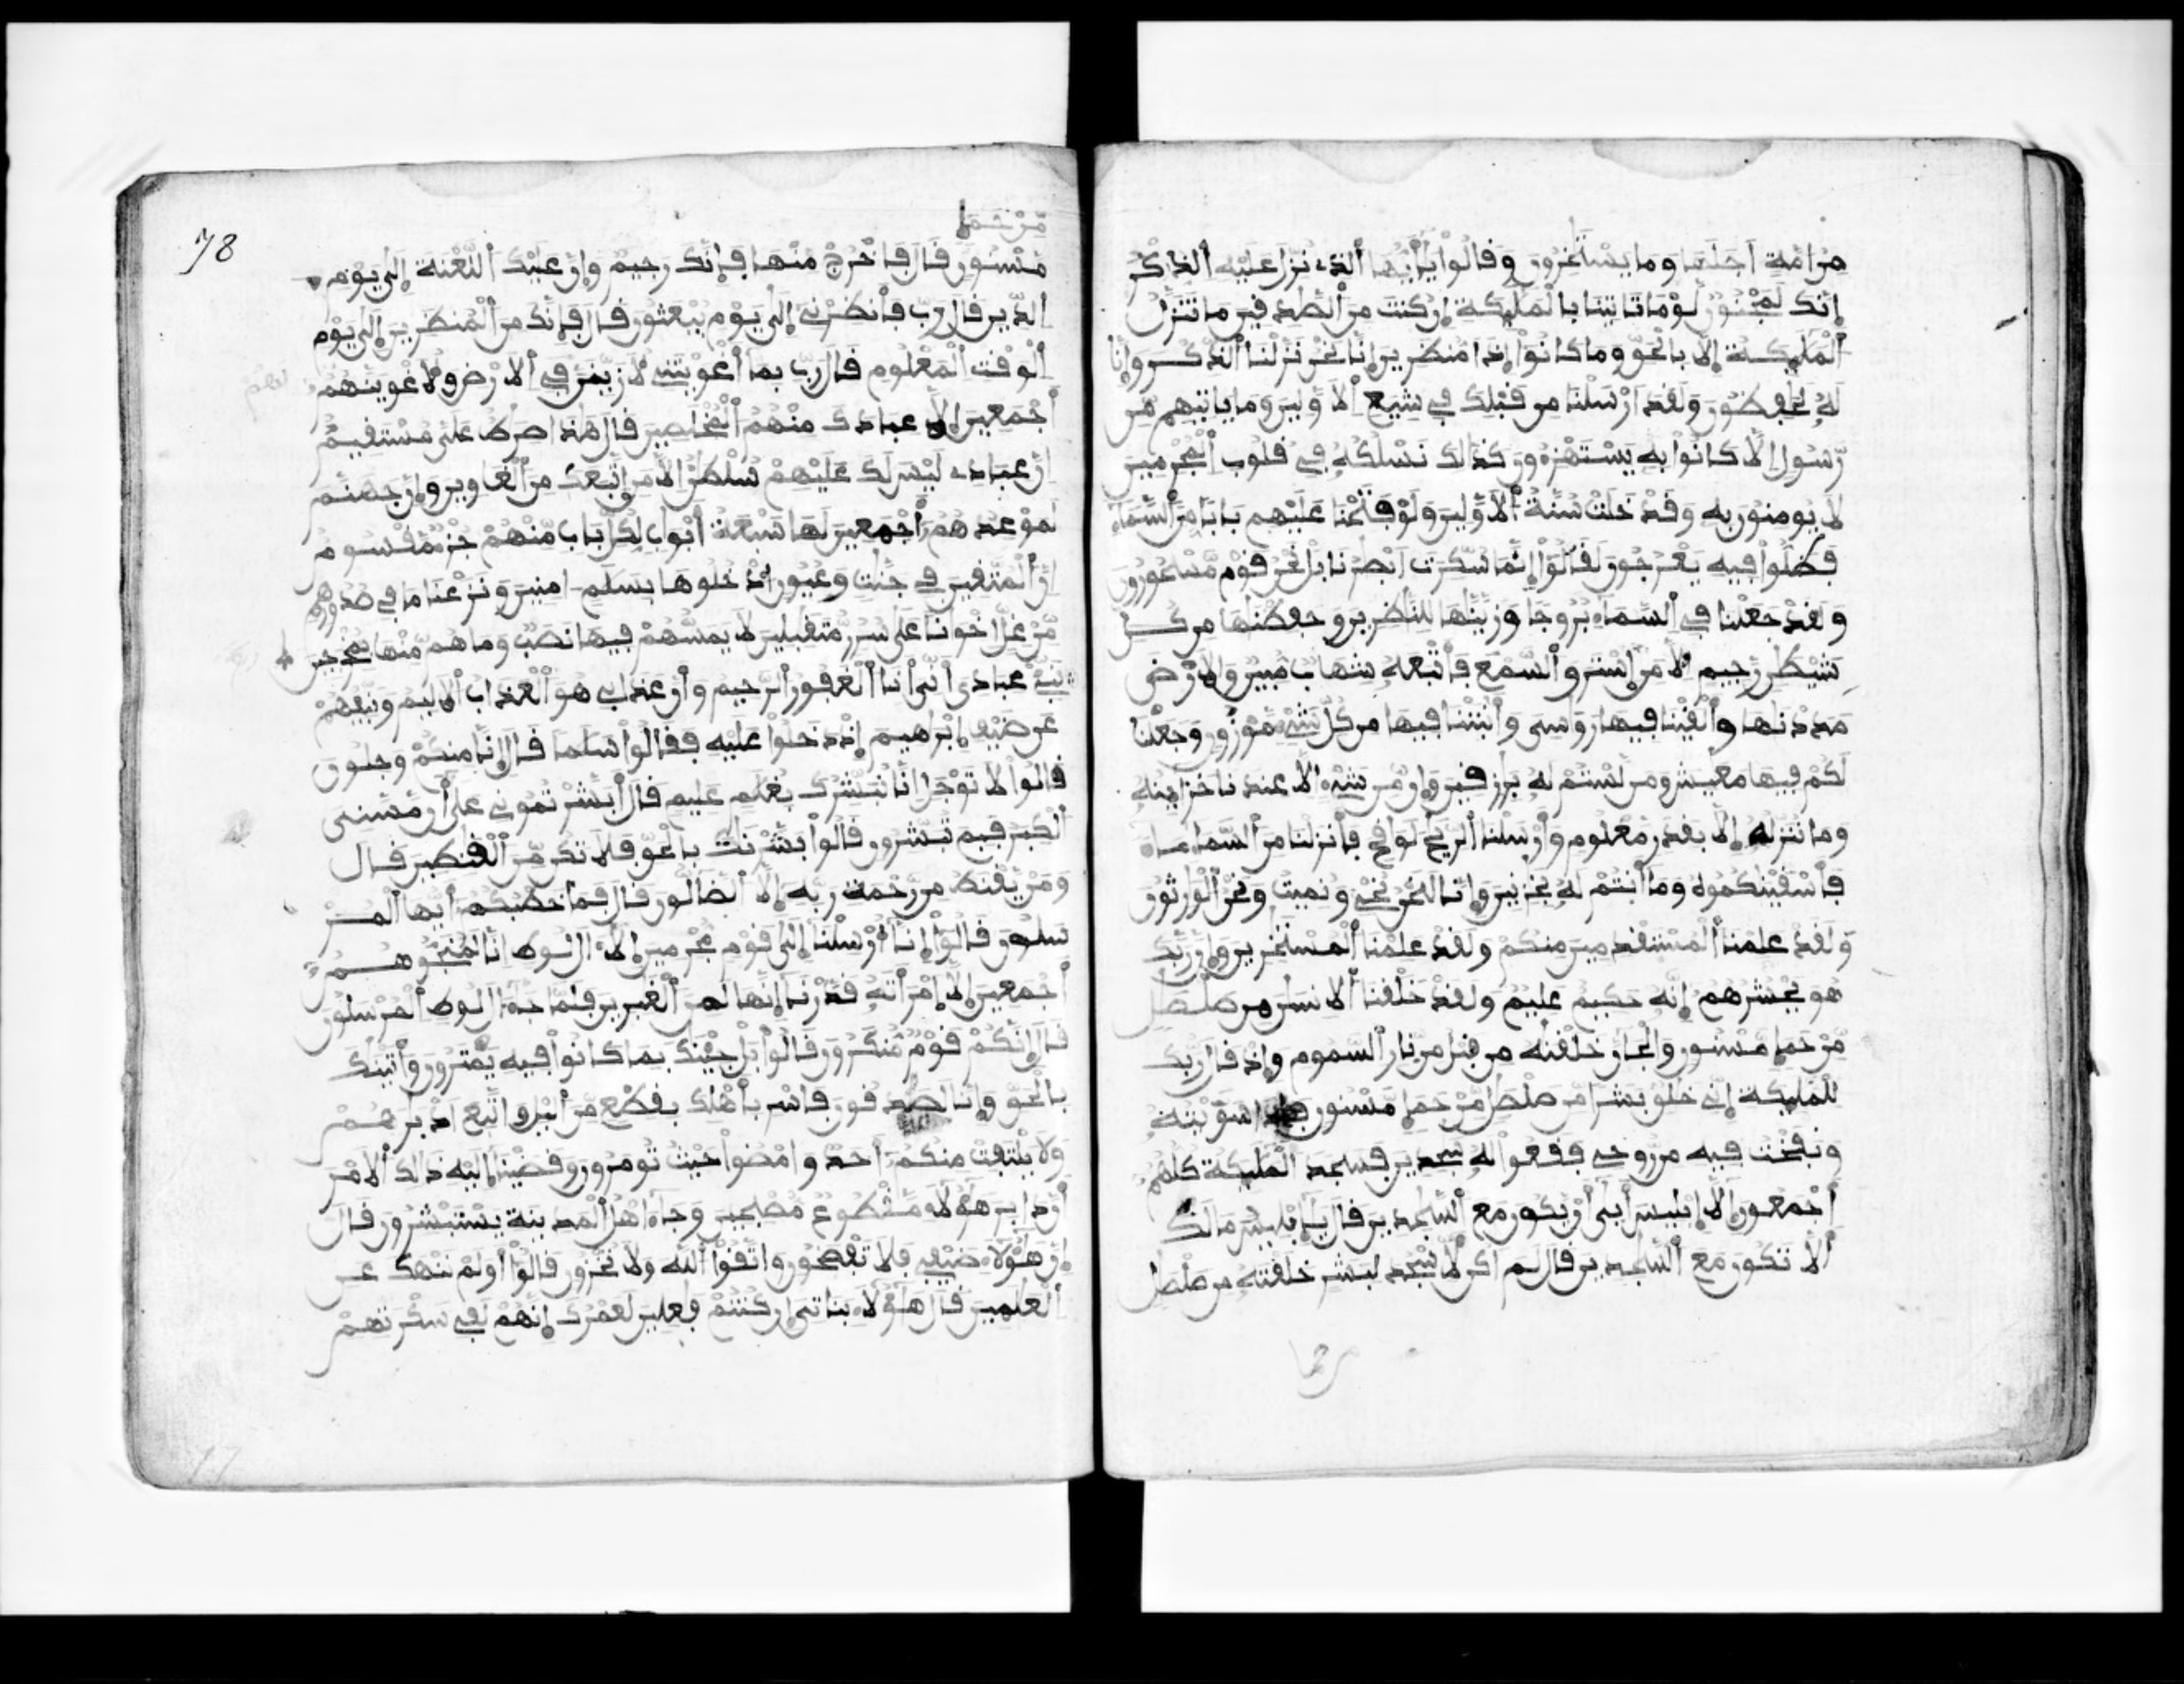 من امة اجلها وما يستـخرون وقالوا يايها الذي نزل عليه الذكر
إنك لمجنون لوما تاتينا بالمليكة إن كنت من الصدقين ما تنزل
المليكة إلا بالحق وما كانوا إذا منظرين إنا نحن نزلنا الذكر وإنا
له لحفظون ولقد ارسلنا من قبلك في شيع الاولين وما ياتيهم من
رسول إلا كانوا به يستهزءون كذالك نسلكه في قلوب المجرمين
لا يومنون به وقد خلت سنة الاولين ولو فتحنا عليهم بابا من السماء
فظلوا فيه يعرجون لقالوا إنما سكرت ابصرنا بل نحن قوم مسحورون
ولقد جعلنا في السماء بروجا وزينها للنظرين وحفظنها من كل
شيطن رجيم الا من استرق السمع فاتبعه شهاب مبين والارض
مددنها والقينا فيها روسى وانبتنا فيها من كل شيء موزون وجعلنا
لكم فيها معيش ومن لستم له برزقين وإن من شيء الا عندنا خزاينه
وما ننزله إلا بقدر معلوم وارسلنا الريح لوقح فانزلنا من السماء ماء
فاسقينكموه وما انتم له بخزنين وإنا لنحن نحي ونميت ونحن الورثون
ولقد علمنا المستقدمين منكم ولقد علمنا المستـخرين وإن ربك
هو يحشرهم إنه حكيم عليم ولقد خلقنا الانسن من صلصل
من حما مسنون والجان خلقنه من قبل من نار السموم وإذ قال ربك
للمليكة إني خلق بشرا من صلصل من حما مسنون فإذا سويته
ونفخت فيه من روحي فقعوا له سجدين فسجد المليكة كلهم
اجمعون إلا إبليس أبى أن يكون مع السجدين قال يإبليس ما لك
ألا تكون مع السجدين قال لم اكن لاسجد لبشر خلقته من صلصل
78
من حما
مسنون قال فاخرج منها فإنك رجيم وإن عليك اللعنة إلى يوم
الدين قال رب فانظرني إلى يوم يبعثون قال فإنك من المنظرين إلى يوم
الوقت المعلوم قال رب بما أغويتني لازينن في الارض ولاغوينهم
أجمعين إلا عبادك منهم المخلصين قال هذا صرط على مستقيم
إن عبادي ليس لك عليهم سلطن إلا من اتبعك من الغاوين وإن جهنم
لموعدهم أجمعين لها سبعة أبواب لكل باب منهم جزء مقسوم
إن المتقين في جنت وعيون ادخلوها بسلم امنين ونزعنا ما في صدورهم
من غل اخونا على سرر متقبلين لا يمسهم فيها نصب وما هم منها بمخرجين
نبئ عبادي أني أنا الغفور الرحيم وأن عذابي هو العذاب الاليم ونبئهم
عن ضيف إبراهيم إذ دخلوا عليه فقالوا سلما قال إنا منكم وجلون
قالوا لا توجل إنا نبشرك بغلم عليم قال أبشرتموني على أن مسني
الكبر فبم تبشرون قالوا بشرنك بالحق فلا تكن من القنطين قال
ومن يقنط من رحمة ربه إلا الضالون قال فما خطبكم أيها المر
سلون قالوا إنا أرسلنا إلى قوم مجرمين إلا ال لوط انا لمنجوهم
أجمعين إلا امرأته قدرنا إنها لمن الغبرين فلما جاء ال لوط المرسلون
قال إنكم قوم منكرون قالوا بل جينك بما كانوا فيه يمترون وأتينك
بالحق وإنا لصدقون فاسر بأهلك بقطع من اليل واتبع ادبرهم
ولا يلتفت منكم احد وامضوا حيث تومرون وقضينا إليه ذالك الامر
أن دابر هؤلاء مقطوع مصبحين وجاء اهل المدينة يستبشرون قال
إن هؤلاء ضيفي فلا تفضحون واتقوا الله ولا تخزون قالوا أولم ننهك عن
العلمين قال هؤلاء بناتي إن كنتم فعلين لعمرك إنهم لفي سكرتهم